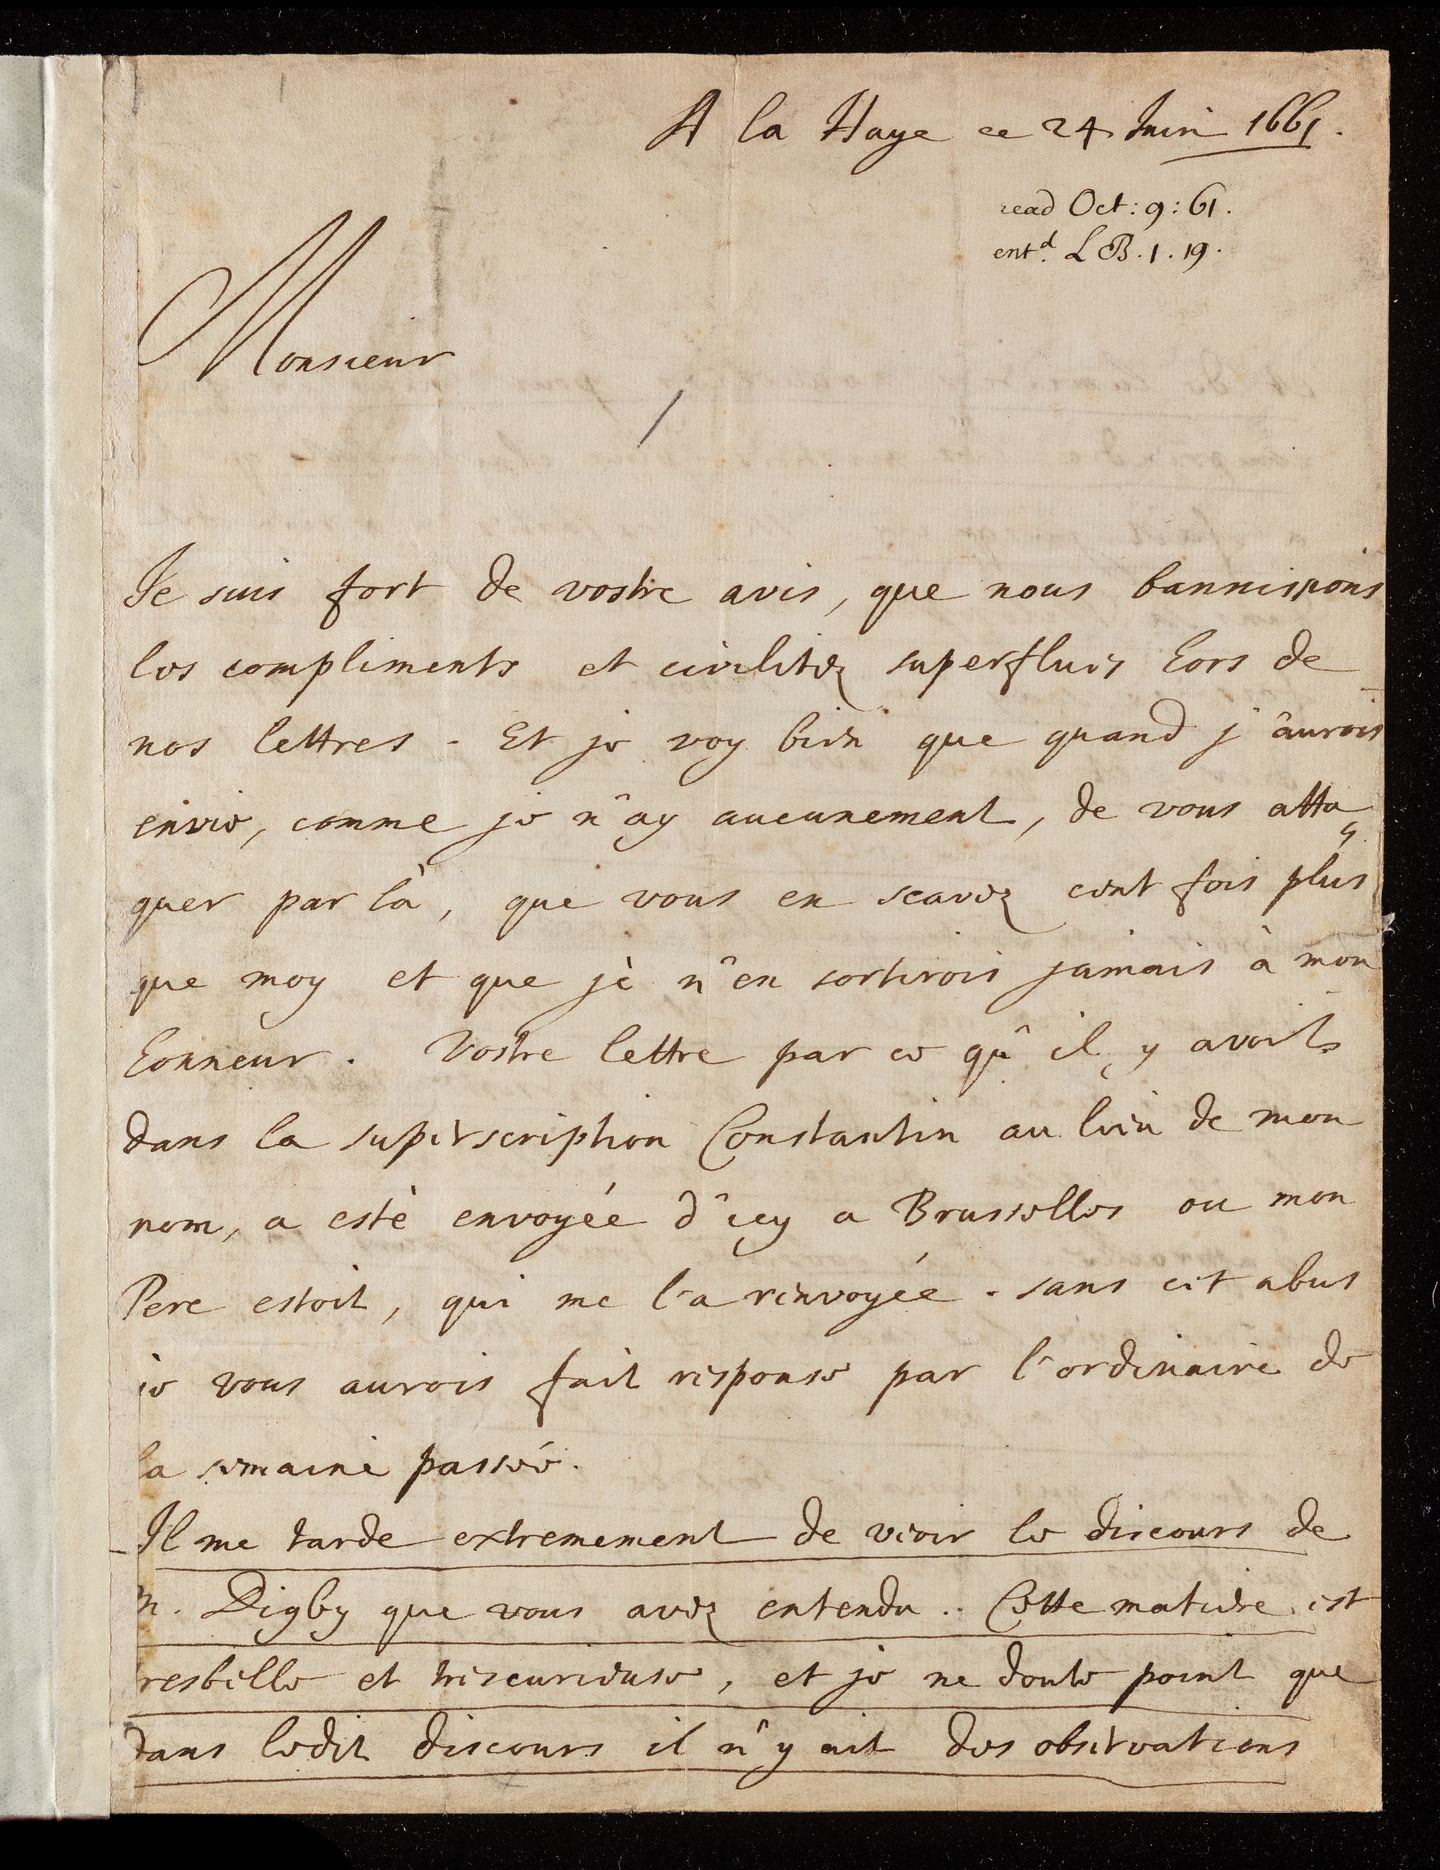 A la Haye ce 24 Juin 1661.
read Oct: 9: 61.
entd. L B. 1. 19.
Monsieur
Je suis fort de vostre avis, que nous bannissions
les compliments et civilitez superflues hors de
nos lettres. Et je voy bien que quand j'aurois
envie, comme je n'ay aucunement, de vous atta
quer par là, que vous en scavez cent fois plus
que moy et que je n'en sortirois jamais à mon
honneur. Vostre lettre par ce qu'il y avoit
dans la superscription Constantin au lieu de mon
nom, a esté envoyée d'icy a Brusselles ou mon
Pere estoit, qui me l'a renvoyée. sans cet abus
je vous aurois fait response par l'ordinaire de
la semaine passée.
Il me tarde extremement de veoir le discours de
M. Digby que vous avez entendu.. Cette matiere est
tresbelle et trescurieuse, et je ne doute point que
dans ledit discours il n'y ait des observations